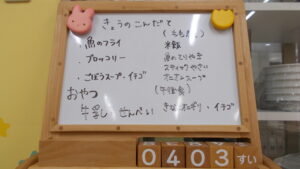 きょうのこんだて
魚のフライ
・ブロッコリー
・ごぼうスープ・イチゴ
おやつ
牛乳 せんべい
(ももぐみ)
軟飯
魚のてりやき
スティックやさい
スープ
(午後食)
きなこおにぎり・イチゴ
0403すい